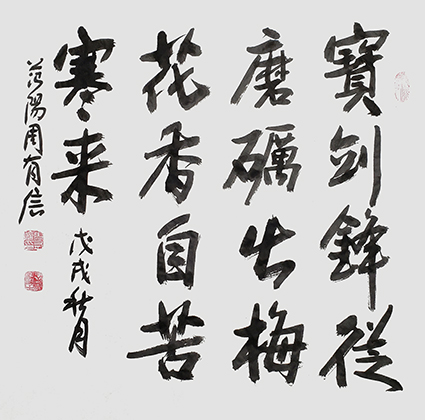 寶剑鋒從
磨礪出梅
花香自苦
寒来 戊戌秋月
范陽周有信